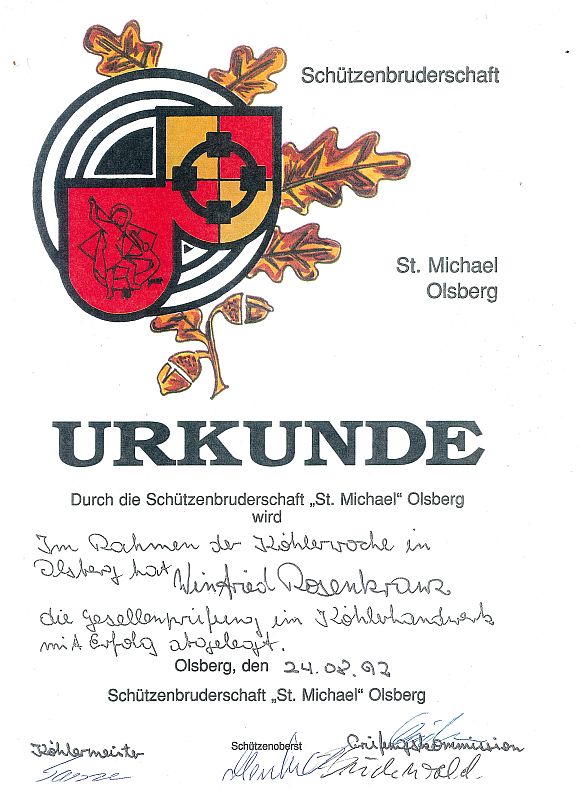 Schützenbruderschaft
St. Michael
Olsberg
URKUNDE
Durch die Schützenbruderschaft „St. Michael“ Olsberg
wird
Im Rahmen der Köhlerwoche in
Olsberg hat Winfried Rosenkranz
die Gesellenprüfung im Köhlerhandwerk
mit Erfolg abgelegt.
Olsberg, den 24.08.92
Schützenbruderschaft „St. Michael“ Olsberg
Köhlermeister Schützenoberst Prüfungskommission